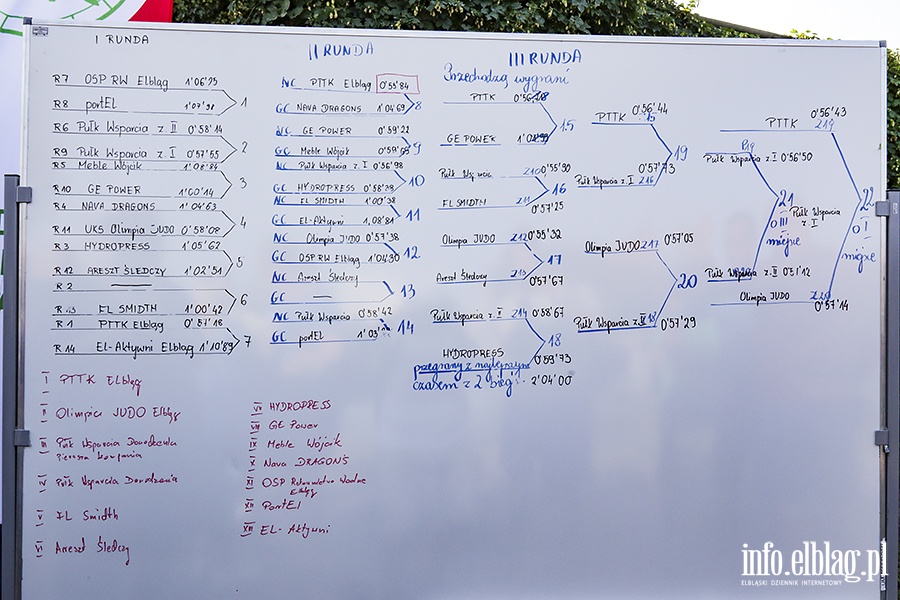 I RUNDA
R7 OSP RW Elbląg 1'06"25
R8 portEL
1
R6 Pułk Wsparcia z. II 0'58"14
R9 Pułk Wsparcia z. I 0'57"55
2
R5 Meble Wójcik 1'08"84
R10 GE POWER 1'00"14
3
R4 NAVA DRAGONS 1'04"63
R11 UKS Olimpia JUDO 0'58"08
4
R3 HYDROPRESS 1'05"62
R12 ARESZT ŚLEDCZY 1'02"51
5
R2
FL SMIDTH 1'00"42
6
R1 PTTK Elbląg 0'57"18
R14 EL-Aktywni Elbląg 1'10"89
7
II RUNDA
NC PTTK Elbląg 0'55"84
GC NAVA DRAGONS 1'04"69
8
NC GE POWER 0'59"22
GC Meble Wójcik
9
NC Pułk Wsparcia z. I 0'56"98
GC HYDROPRESS
10
NC FL SMIDTH 1'00"38
GC EL-Aktywni 1,08"81
11
NC Olimpia JUDO 0'57"38
GC OSP RW Elbląg 1'04"30
12
NC Areszt Śledczy
GC
13
NC Pułk Wsparcia 0'58"42
GC portEL
14
III RUNDA
Przechodzą wygrani
PTTK
GE POWER
15
Pułk Wsparcia
FL SMIDTH Z11 0'57"25
16
Olimpia JUDO Z12 0'55"32
Areszt Śledczy Z13 0'57"67
17
Pułk Wsparcia z. II Z14 0'58"67
HYDROPRESS 0'59"73
18
przegrany z najlepszym
czasem z 2 biegu 2'04"00
PTTK 0'56"44
Pułk Wsparcia z. I Z16 0'57"73
19
Olimpia JUDO Z17 0'57"05
Pułk Wsparcia z. II Z18 0'57"29
20
PTTK Z19 0'56"43
Pułk Wsparcia z. I 0'56"50
21
o III miejsce
Pułk Wsparcia z. I
Pułk Wsparcia z. II
Olimpia JUDO Z20 0'57"14
22
o I miejsce
I PTTK Elbląg
II Olimpia JUDO Elbląg
III Pułk Wsparcia Dowodzenia
pierwsza kompania
IV Pułk Wsparcia Dowodzenia
V FL Smidth
VI Areszt Śledczy
VII HYDROPRESS
VIII GE Power
IX Meble Wójcik
X Nava DRAGONS
XI OSP Ratownictwo Wodne
Elbląg
XII PortEl
XIII EL-Aktywni
info.elblag.pl
ELBLĄSKI DZIENNIK INTERNETOWY